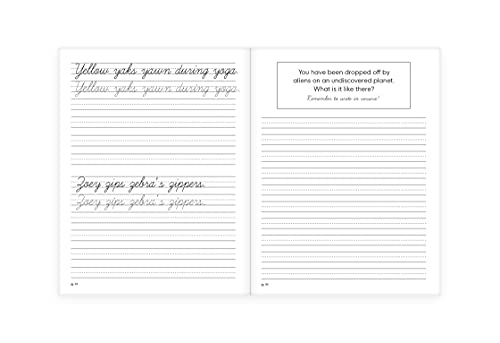 Yellow yaks yawn during yoga.
Yellow yaks yawn during yoga.
Zoey zips zebra's zippers.
Zoey zips zebra's zippers.
You have been dropped off by
aliens on an undiscovered planet.
What is it like there?
Remember to write in cursive!